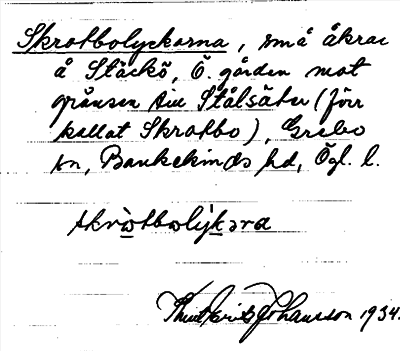 Skrotbolyckorna, små åkrar
å Stäckö, Ö. gården mot
gränsen till Stålsäter (förr
kallat Skrotbo), Grebo
sn, Bankekinds hd, Ögl. l.
skrò̲tbolýk̲əra
Knut Frits Johansson 1934.